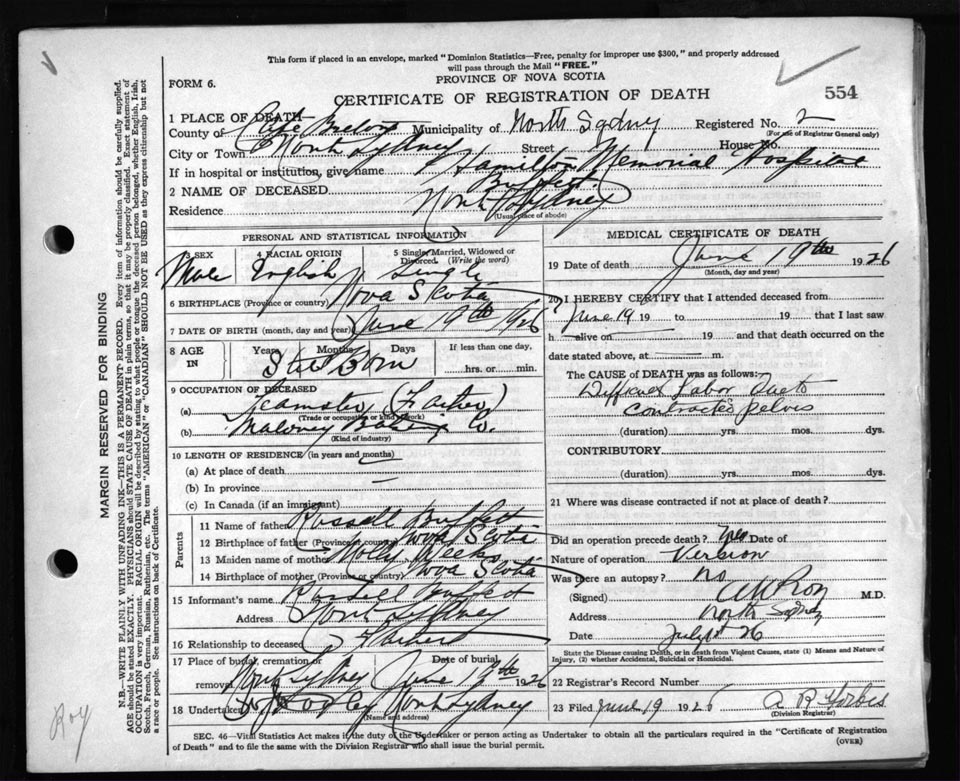 This form if placed in an envelope, marked "Dominion Statistics—Free, penalty for improper use $300," and properly addressed
will pass through the Mail "FREE."
FORM 6.
PROVINCE OF NOVA SCOTIA
CERTIFICATE OF REGISTRATION OF DEATH
554
1 PLACE OF DEATH—
County of Cape Breton Municipality of North Sydney Registered No. 2
(For use of Registrar General only)
City or Town North Sydney Street House No.
If in hospital or institution, give name Hamilton Memorial Hospital
2 NAME OF DECEASED
Residence North Sydney
(Usual place of abode)
PERSONAL AND STATISTICAL INFORMATION
3 SEX 4 RACIAL ORIGIN 5 Single, Married, Widowed or Divorced. (Write the word)
Male English Single
6 BIRTHPLACE (Province or country) Nova Scotia
7 DATE OF BIRTH (month, day and year) June 19th 1926
8 AGE IN Years Months Days If less than one day,
Still Born hrs. or min.
9 OCCUPATION OF DECEASED
(a) Teamster (Father)
(Trade or occupation or kind of work)
(b) Maloney Co.
(Kind of industry)
10 LENGTH OF RESIDENCE (in years and months)
(a) At place of death
(b) In province
(c) In Canada (if an immigrant)
Parents
11 Name of father Russell
12 Birthplace of father (Province or country) Nova Scotia
13 Maiden name of mother Molly Weeks
14 Birthplace of mother (Province or country) Nova Scotia
15 Informant's name Russell
Address North Sydney
16 Relationship to deceased Father
17 Place of burial, cremation or removal North Sydney Date of burial June 1926
18 Undertaker North Sydney
(Name and address)
MEDICAL CERTIFICATE OF DEATH
19 Date of death June 19th 1926
(Month, day and year)
20 I HEREBY CERTIFY that I attended deceased from
June 19 19 to 19 that I last saw
h alive on 19 and that death occurred on the
date stated above, at m.
The CAUSE OF DEATH was as follows:
Difficult Labor Due to
contracted pelvis
(duration) yrs. mos. dys.
CONTRIBUTORY
(duration) yrs. mos. dys.
21 Where was disease contracted if not at place of death?
Did an operation precede death? Yes Date of
Nature of operation Version
Was there an autopsy? no
(Signed) M.D.
Address North Sydney
Date July 26
State the Disease causing Death, or in death from Violent Causes, state (1) Means and Nature of
Injury, (2) whether Accidental, Suicidal or Homicidal.
22 Registrar's Record Number
23 Filed June 19 1926 A R Forbes
(Division Registrar)
SEC. 46—Vital Statistics Act makes it the duty of the Undertaker or person acting as Undertaker to obtain all the particulars required in the "Certificate of Registration
of Death" and to file the same with the Division Registrar who shall issue the burial permit.
(OVER)
MARGIN RESERVED FOR BINDING
N.B.—WRITE PLAINLY WITH UNFADING INK—THIS IS A PERMANENT RECORD. Every item of information should be carefully supplied.
AGE should be stated EXACTLY. PHYSICIANS should STATE CAUSE OF DEATH in plain terms, so that it may be properly classified. Exact statement of
OCCUPATION is very important. RACIAL ORIGIN will be described by stating to what people or tongue the deceased person belonged, whether English, Irish,
Scotch, French, German, Russian, Ruthenian, etc. The terms "AMERICAN" or "CANADIAN" SHOULD NOT BE USED as they express citizenship but not
a race or people. See instructions on back of Certificate.
Roy